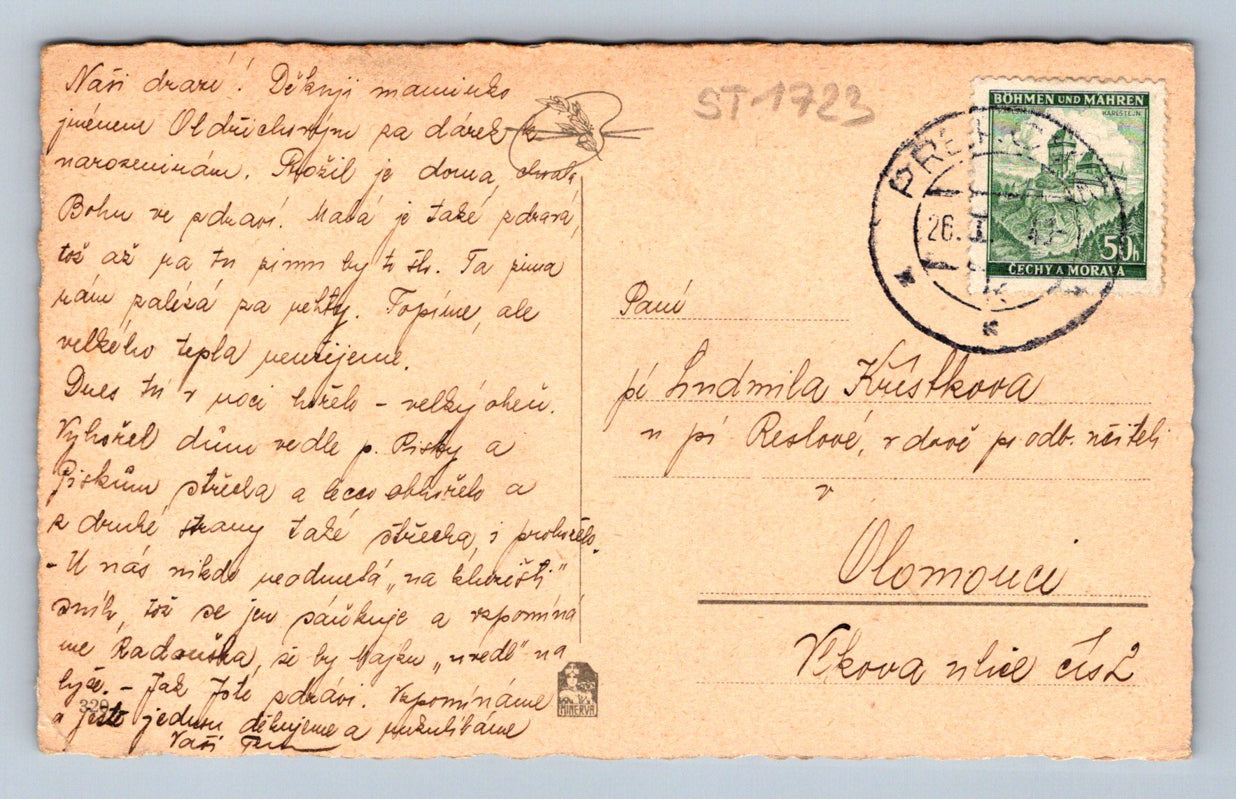 Naši drazí! Děkuji mamince
jménem Oldřichovým za dárek k
narozeninám. Prožil je doma, chvála
Bohu ve zdraví. Malá je také zdravá,
tož až na tu zimu by to šlo. Ta zima
nám zalézá za nehty. Topíme, ale
velkého tepla neužijeme.
Dnes tu v noci hořelo - velký oheň.
Vyhořel dům vedle p. Pisky a
Piskům střecha a lecco obhořelo a
z druhé strany také střecha, i prohořelo.
- U nás nikdo neodmetá "na
sníh, tož se jen sáňkuje a vzpomíná
me Radouška, že by Majku "svedl" na
lyže. - Jak jste zdrávi. Vzpomínáme
a ještě jednou děkujeme a
Vaši
320
ST 1723
BÖHMEN UND MÄHREN
KARLSTEJN
50h
ČECHY A MORAVA
26.
Paní
pí Ludmila Křístkova
u pí Reslové, vdově po odb. učiteli
v
Olomouci
Vlkova ulice čís 2
MINERVA